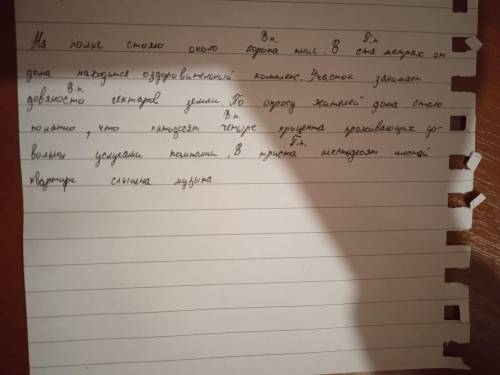 В п. П.п.
На полке стояло около сорока книг. В ста метрах от
дома находится оздоровительный комплекс. Участок занимает
В п.
девяносто гектаров земли. По опросу жителей дома стало
В п.
понятно, что пятьдесят четыре процента проживающих до-
П.п.
вольны услугами компании. В триста шестьдесят шестой
квартире слышена музыка